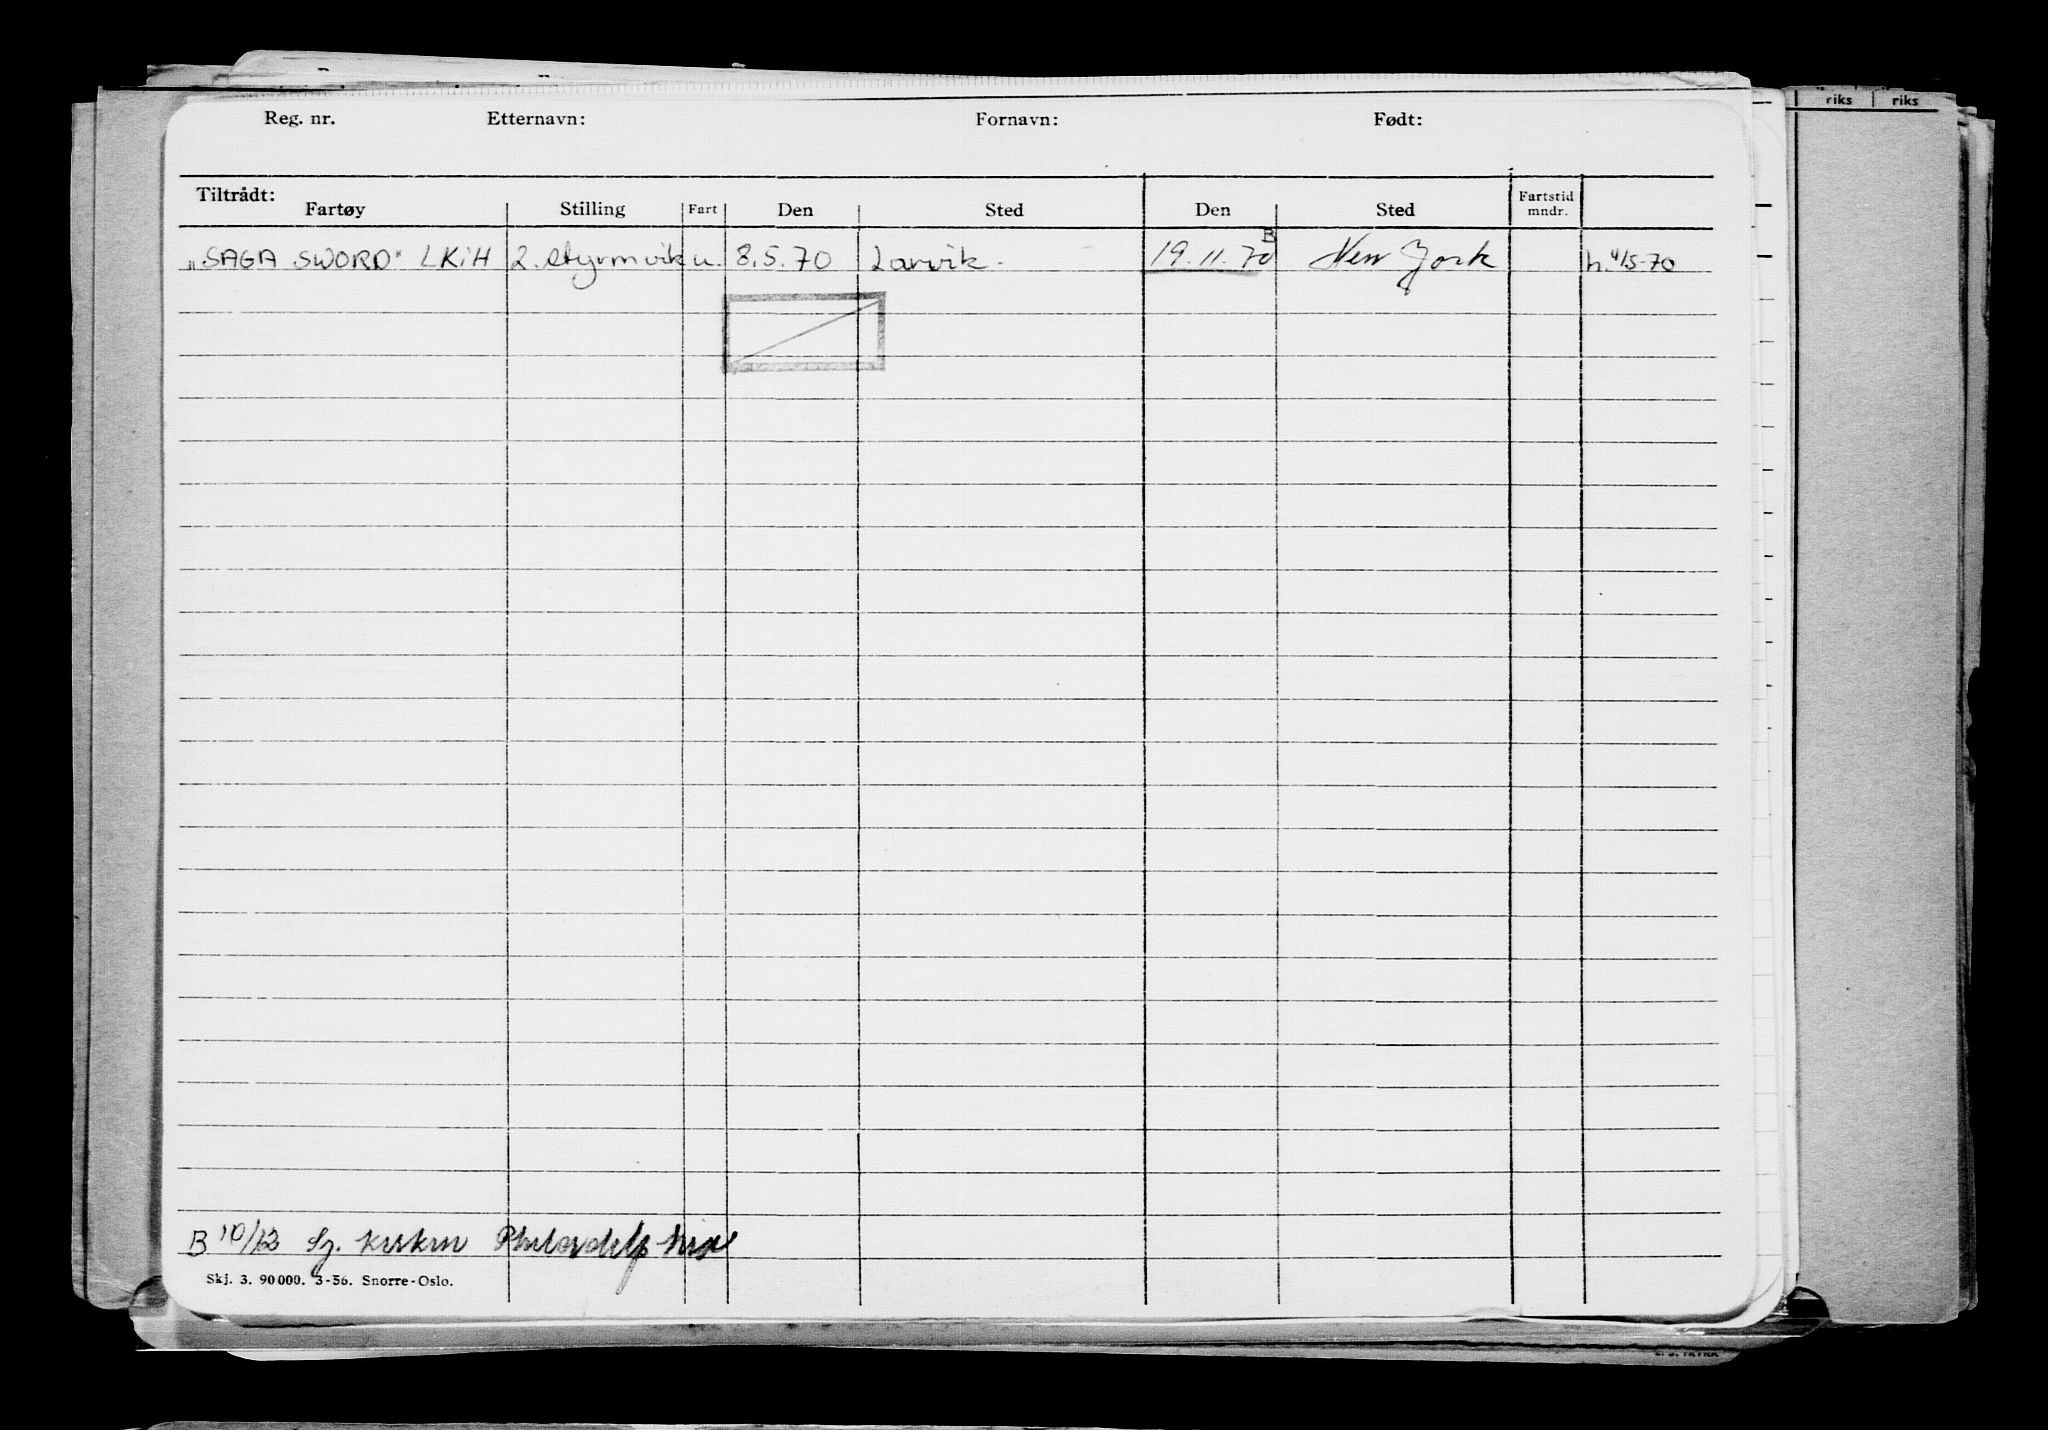 riks riks
Reg. nr. Etternavn: Fornavn: Født:
Tiltrådt:
Fartøy Stilling Fart Den Sted Den Sted Fartstid mndr.
B
„SAGA SWORD" LKiH 2. styrmvik u. 8.5.70 Larvik. 19.11.70 New York h. 4/5-70
B 10/12
Skj. 3. 90 000. 3-56. Snorre-Oslo.